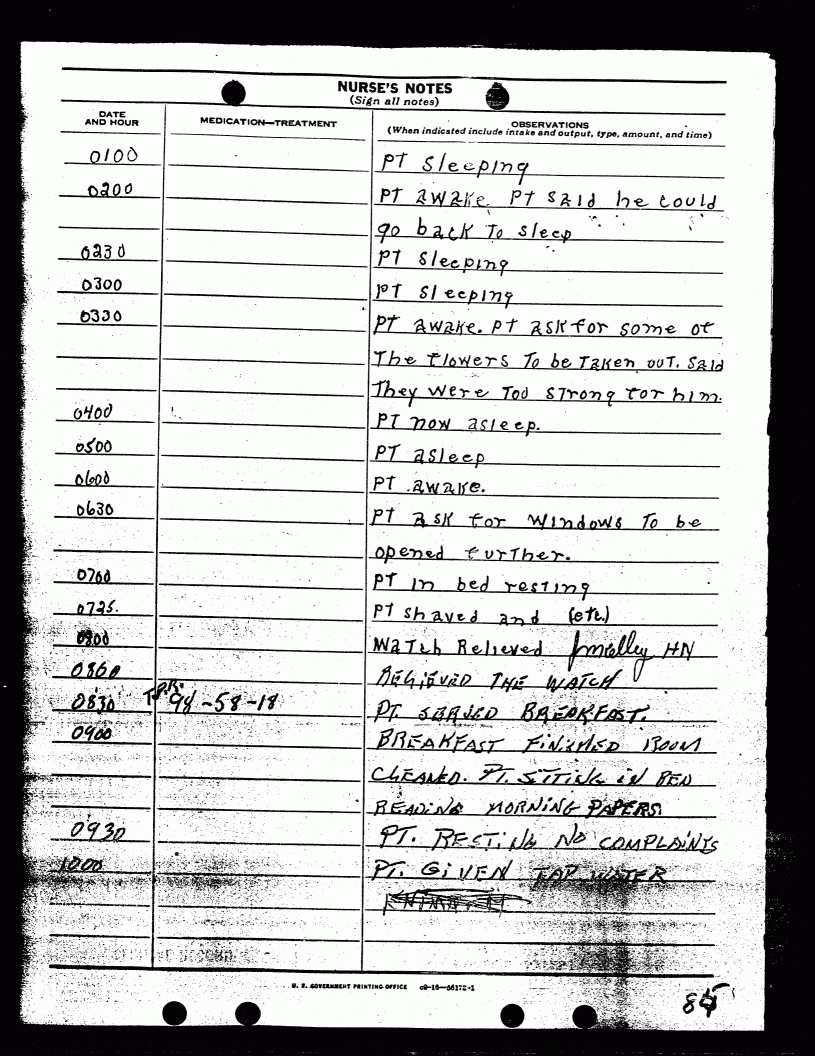 NURSE'S NOTES
(Sign all notes)
DATE AND HOUR MEDICATION—TREATMENT OBSERVATIONS
(When indicated include intake and output, type, amount, and time)
0100 PT Sleeping
0200 PT awake. PT said he could
go back To sleep
0230 PT Sleeping
0300 PT Sleeping
0330 PT awake. PT ask for some of
The flowers To be Taken out. Said
They were Too strong for him.
0400 PT now asleep.
0500 PT asleep
0600 PT awake.
0630 PT ask for windows To be
opened further.
0700 PT in bed resting
0725. PT shaved and (etc.)
0800 Watch Relieved HN
0800 RELIEVED THE WATCH
0830 T.P.R. 98-58-18 PT. SERVED BREAKFAST.
0900 BREAKFAST FINISHED ROOM
CLEANED. PT. SITING IN BED
READING MORNING PAPERS.
0930 PT. RESTING NO COMPLAINTS
1000 PT. GIVEN TAP WATER
U. S. GOVERNMENT PRINTING OFFICE c9-16—56172-1